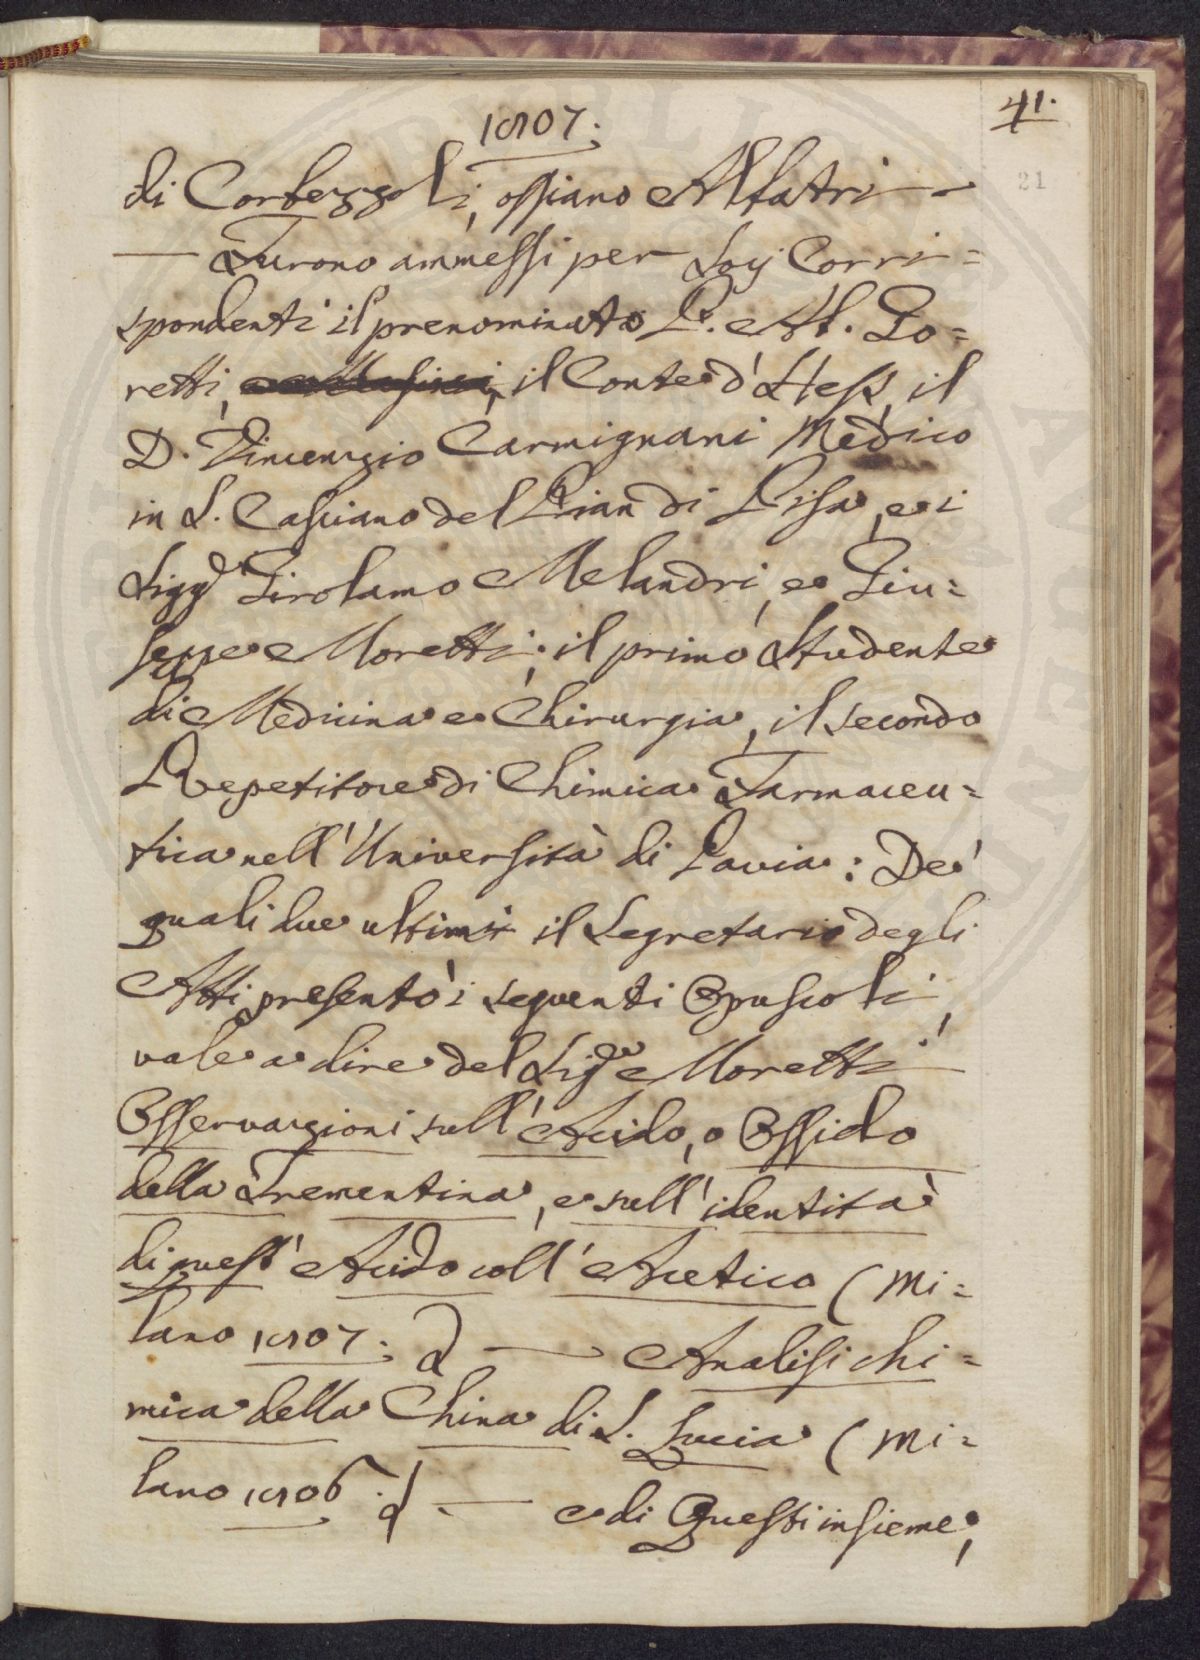 1807.
41.
21
di Corbezzoli, ossiano Albatri —
— Furono ammessi per Socj Corri=
spondenti il prenominato P. Ab. Lo=
retti, il Conte d'Hess, il
D. Vincenzio Carmignani Medico
in S. Casciano del Pian di Pisa, e i
Sigg.ri Girolamo Melandri, e Giu=
seppe Moretti; il primo Studente
di Medicina e Chirurgia, il secondo
Repetitore di Chimica Farmaceu=
tica nell'Università di Pavia: De'
quali due ultimi il Segretario degli
Atti presentò i seguenti Opuscoli,
vale a dire del Sig.re Moretti
Osservazioni sull'Acido, o Ossido
della Trementina, e sull'identità
di quest'Acido coll'Acetico (Mi=
lano 1807.) — Analisi chi=
mica della China di S. Lucia (Mi=
lano 1806.) — e di Questi insieme,